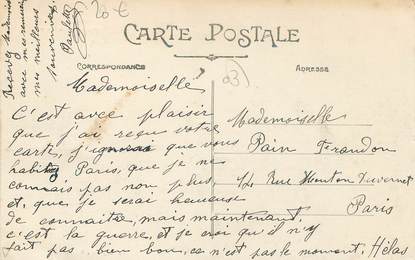 20 €
CARTE POSTALE
CORRESPONDANCE
ADRESSE
03
Mademoiselle
C'est avec plaisir
que j'ai reçu votre
carte, j'ignorais que vous
habitez Paris, que je ne
connais pas non plus,
et, que je serai heureuse
de connaitre, mais maintenant.
c'est la guerre, et je croi qu'il n'y
fait pas bien bon, ce n'est pas le moment, Hélas
Recevez Mademoiselle
avec mes remerci
mes meilleurs
souvenirs,
Paulette
Mademoiselle
Pain Ferandon
14 Rue Mouton Duvernet
Paris